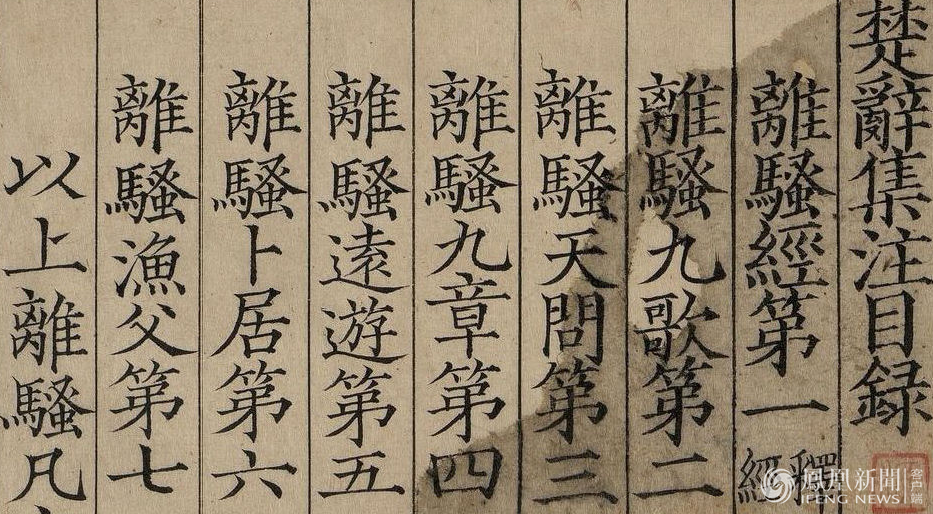 楚辭集注目録
離騷經第一
釋
經
離騷九歌第二
離騷天問第三
離騷九章第四
離騷遠遊第五
離騷卜居第六
離騷漁父第七
以上離騷凡
凤凰新聞
客户端
IFENG NEWS